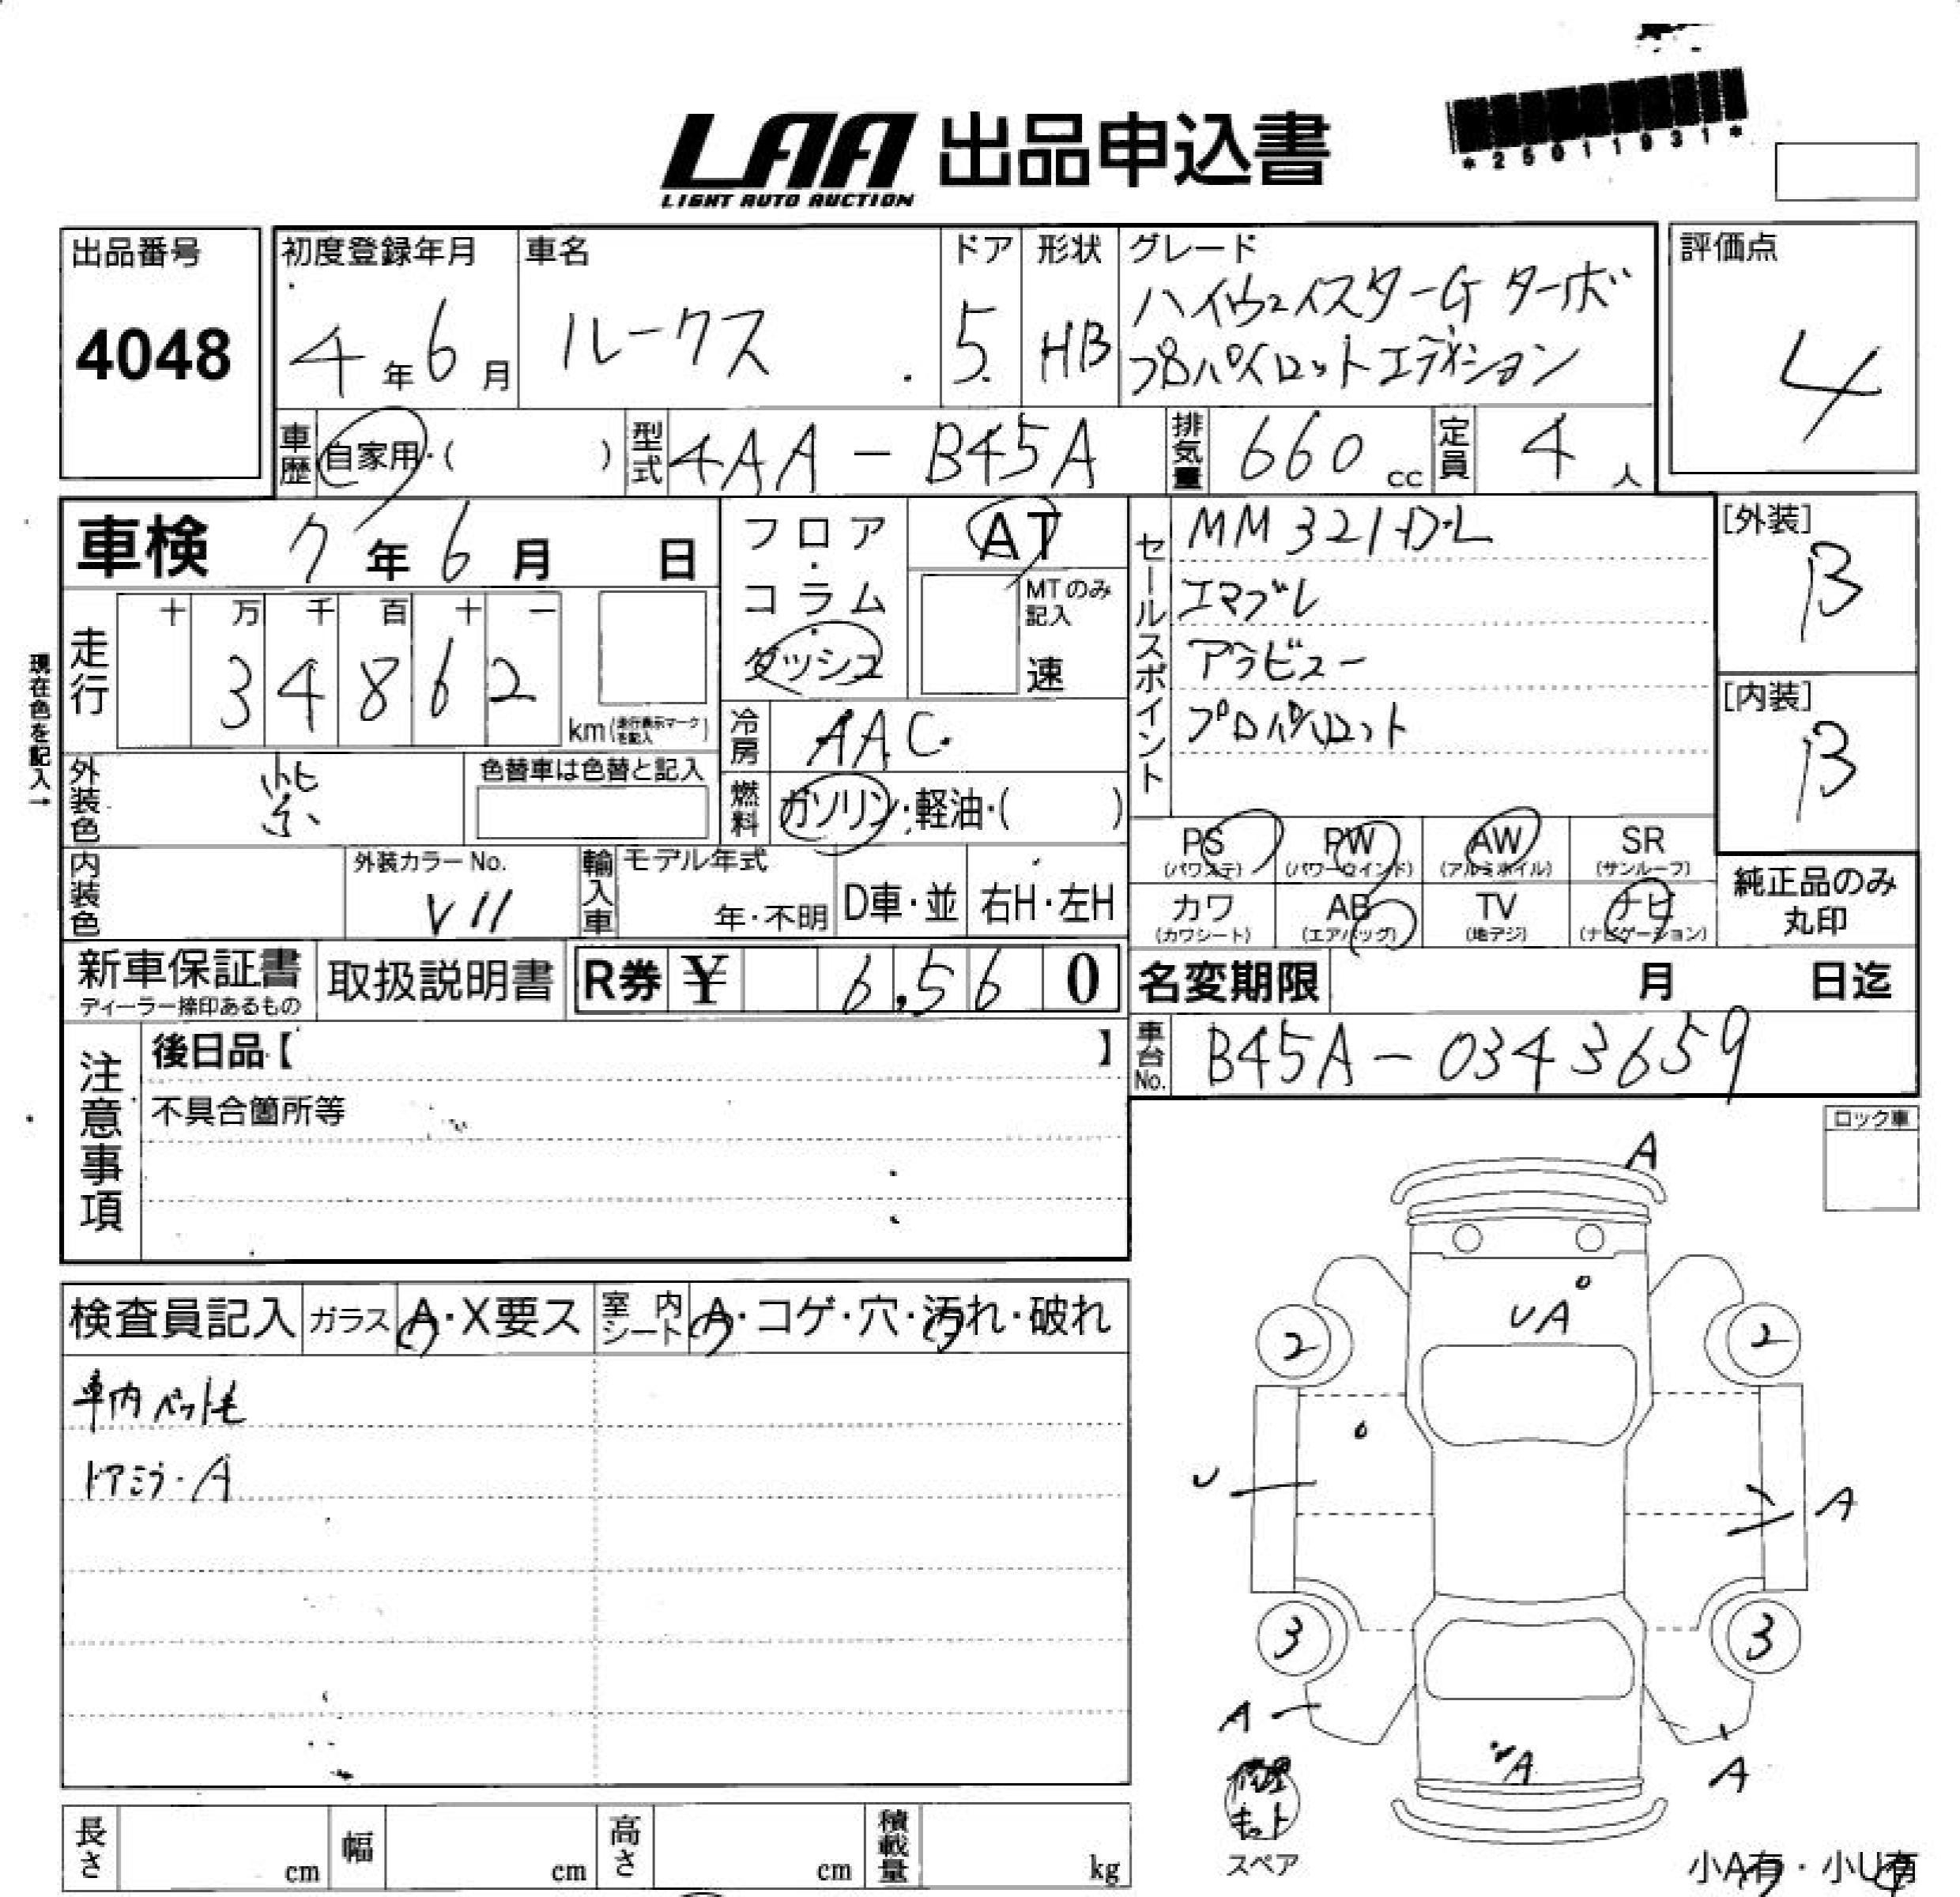 *25011931*
LAA 出品申込書
LIGHT AUTO AUCTION
出品番号
4048
初度登録年月
4年6月
車名
ルークス
ドア
5
形状
HB
グレード
ハイウェイスターG ターボ
プロパイロットエディション
評価点
4
車歴
自家用・( )
型式
4AA-B45A
排気量
660 cc
定員
4 人
車検 7年6月 日
フロア・コラム・ダッシュ
AT
MTのみ記入
速
セールスポイント
MM321-D・L
エマブレ
アラビュー
プロパイロット
[外装]
B
[内装]
B
現在色を記入→
走行
十 万 千 百 十 一
3 4 8 6 2
km(走行表示マークを記入)
冷房
AAC
外装色
紫
色替車は色替と記入
燃料
ガソリン・軽油・( )
PS (パワステ)
PW (パワーウインド)
AW (アルミホイル)
SR (サンルーフ)
カワ (カワシート)
AB (エアバッグ)
TV (地デジ)
ナビ (ナビゲーション)
純正品のみ丸印
内装色
外装カラーNo.
V11
輸入車
モデル年式
年・不明
D車・並
右H・左H
新車保証書
ディーラー捺印あるもの
取扱説明書
R券 ¥ 6,560
名変期限 月 日迄
車台No.
B45A-0343659
注意事項
後日品【 】
不具合箇所等
ロック車
検査員記入
ガラス A・X要ス
室内シート A・コゲ・穴・汚れ・破れ
車内ペット毛
ドアミラ・A
A
UA
2
2
U
A
3
3
A
A
A
修理キット
スペア
小A有・小U有
長さ cm
幅 cm
高さ cm
積載量 kg